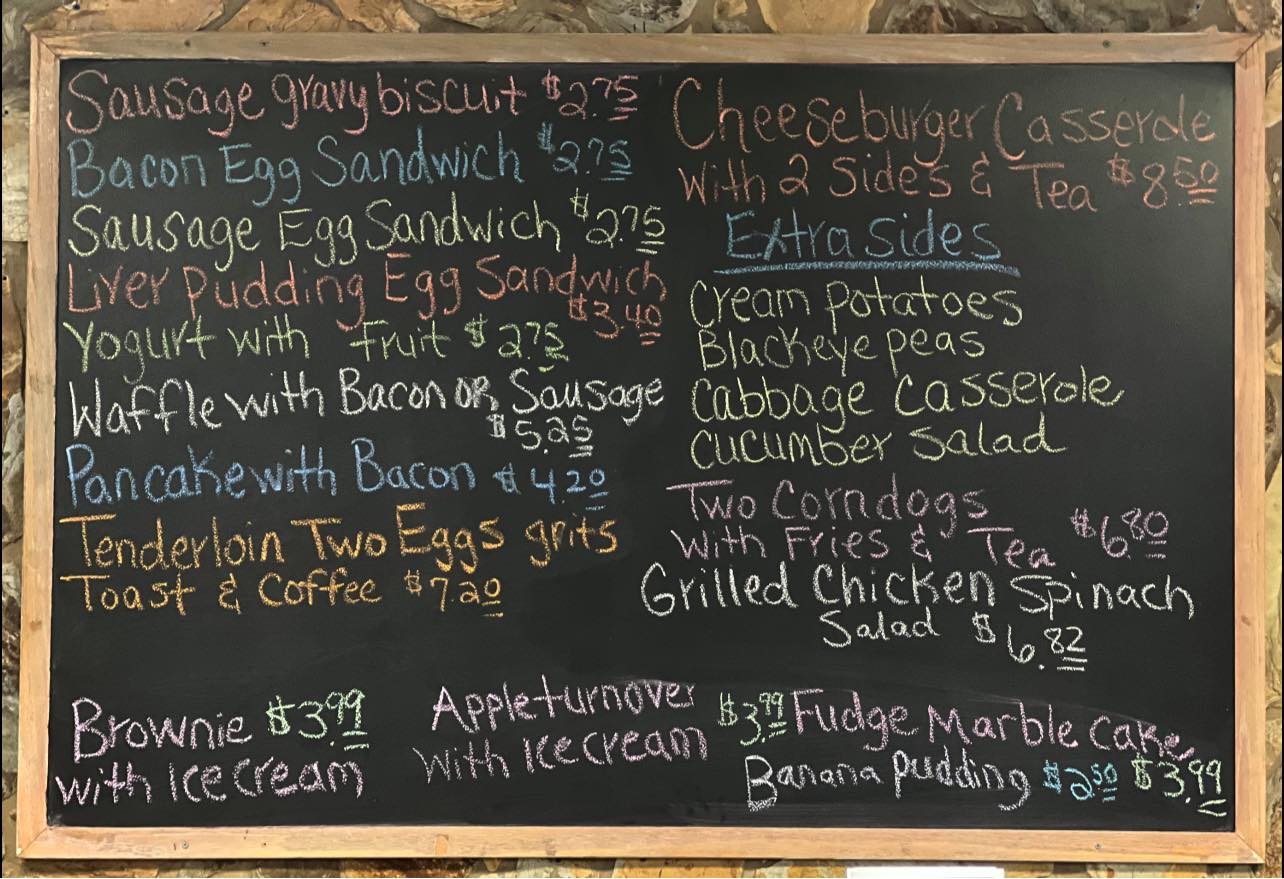 Sausage gravy biscuit $2.75
Bacon Egg Sandwich $2.75
Sausage Egg Sandwich $2.75
Liver pudding Egg Sandwich
$3.40
Yogurt with Fruit $2.75
Waffle with Bacon or Sausage
$5.25
Pancake with Bacon $4.20
Tenderloin Two Eggs grits
Toast & Coffee $7.20
Cheeseburger Casserole
With 2 Sides & Tea $8.50
Extra Sides
Cream potatoes
Blackeye peas
Cabbage Casserole
Cucumber Salad
Two Corndogs
With Fries & Tea $6.80
Grilled Chicken Spinach
Salad $6.82
Brownie $3.99
with Ice cream
Apple turnover $3.99
with Ice cream
Fudge Marble Cake
$3.99
Banana pudding $2.50